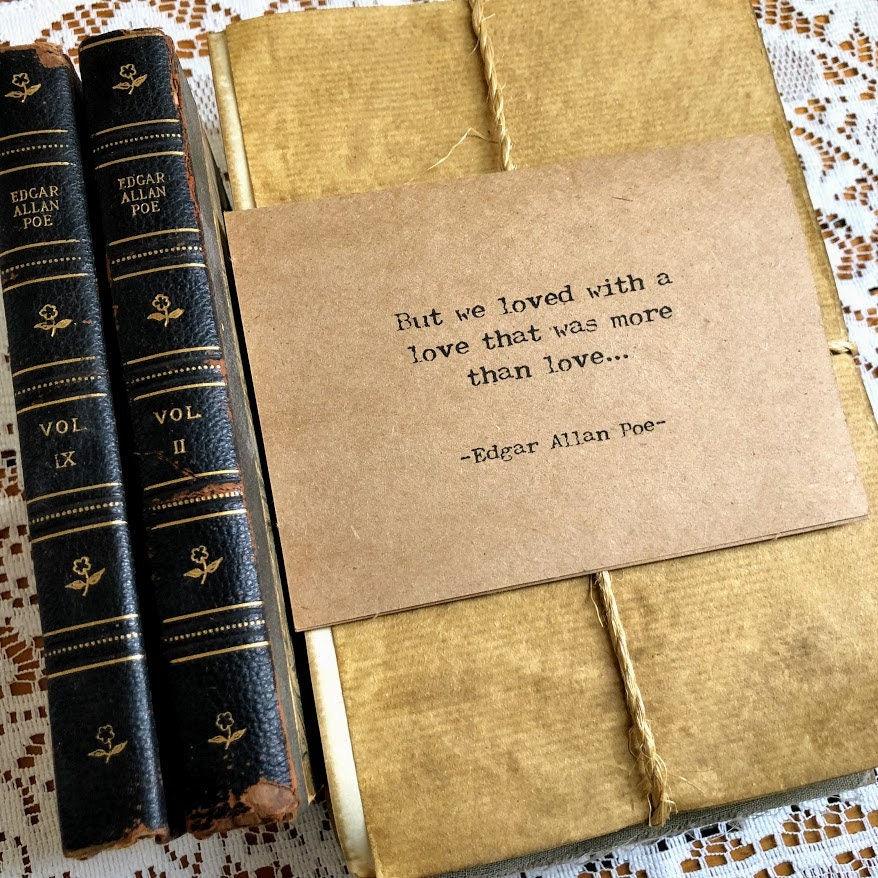 EDGAR
ALLAN
POE
VOL
IX
EDGAR
ALLAN
POE
VOL
II
But we loved with a
love that was more
than love...
-Edgar Allan Poe-